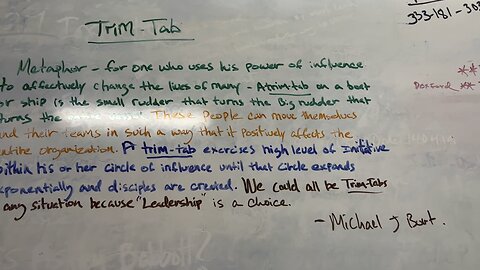 333-181-303
Trim-Tab
Metaphor - for one who uses his power of influence
to affectively change the lives of many - A trim tab on a boat
or ship is the small rudder that turns the Big rudder that
turns the These People can move themselves
and their teams in such a way that it positively affects the
entire organization. A trim-tab exercises high level of Initiative
within his or her circle of influence until that circle expands
exponentially and disciples are created. We could all be Trim-Tabs
any situation because "Leadership" is a choice.
- Michael J Burt.